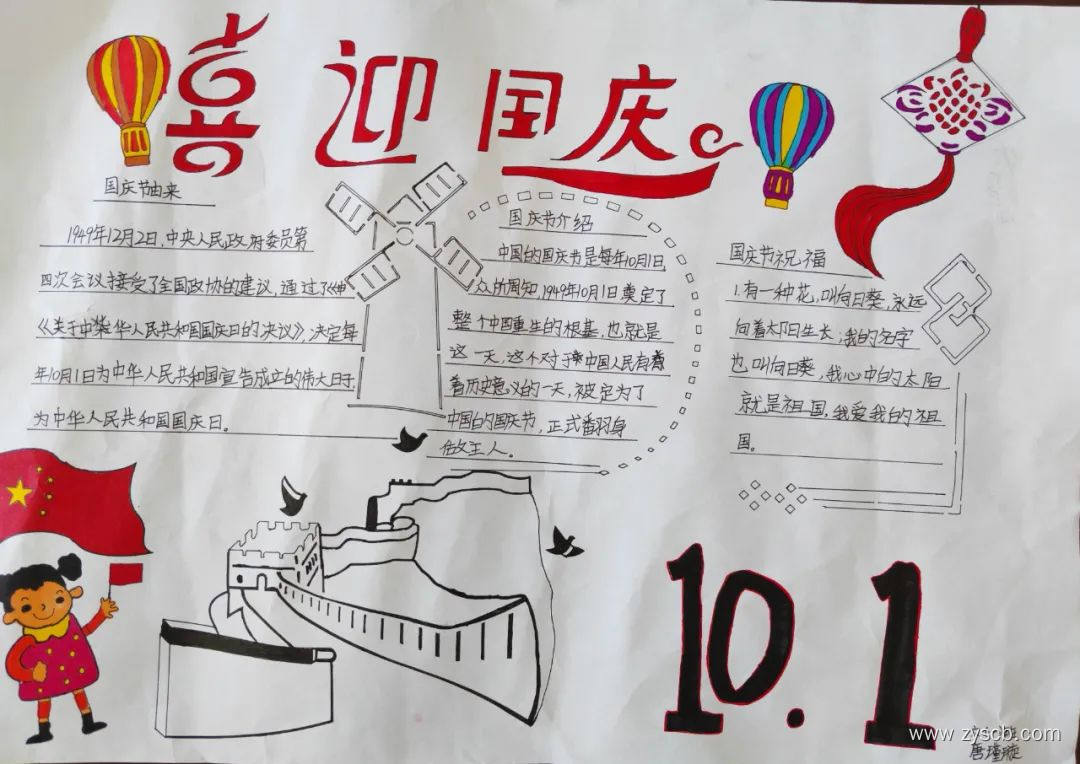 喜迎国庆
国庆节由来
1949年12月2日,中央人民政府委员第
四次会议接受了全国政协的建议,通过了
《关于中华人民共和国国庆日的决议》,决定每
年10月1日为中华人民共和国宣告成立的伟大日子,
为中华人民共和国国庆日。
国庆节介绍
中国的国庆节是每年10月1日,
众所周知,1949年10月1日奠定了
整个中国重生的根基,也就是
这一天,这个对于中国人民有着
着历史意义的一天,被定为了
中国的国庆节,正式翻身
做主人。
国庆节祝福
1.有一种花,叫向日葵,永远
向着太阳生长;我的名字
也叫向日葵,我心中的太阳
就是祖国,我爱我的祖
国。
10.1
www.zyscb.com
唐瑾璇